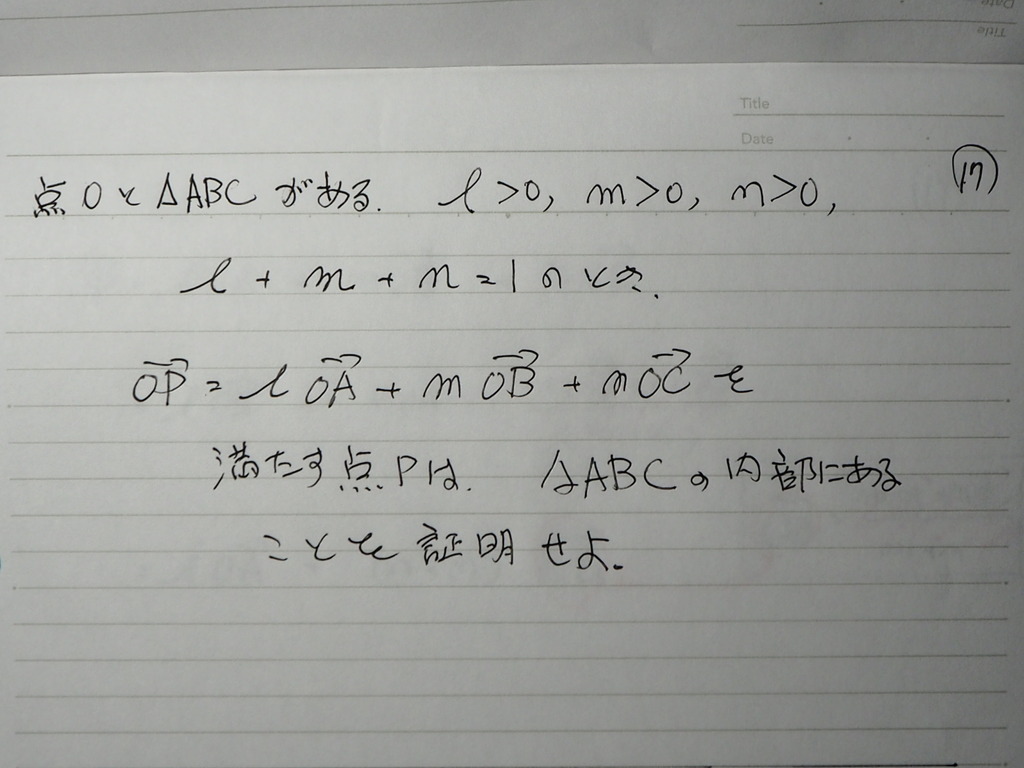 Title
Date
⑰
点Oと△ABCがある. l>0, m>0, n>0,
l + m + n = 1 のとき.
$\overrightarrow{OP} = l\overrightarrow{OA} + m\overrightarrow{OB} + n\overrightarrow{OC}$ を
満たす点Pは. △ABCの内部にある
ことを証明せよ.